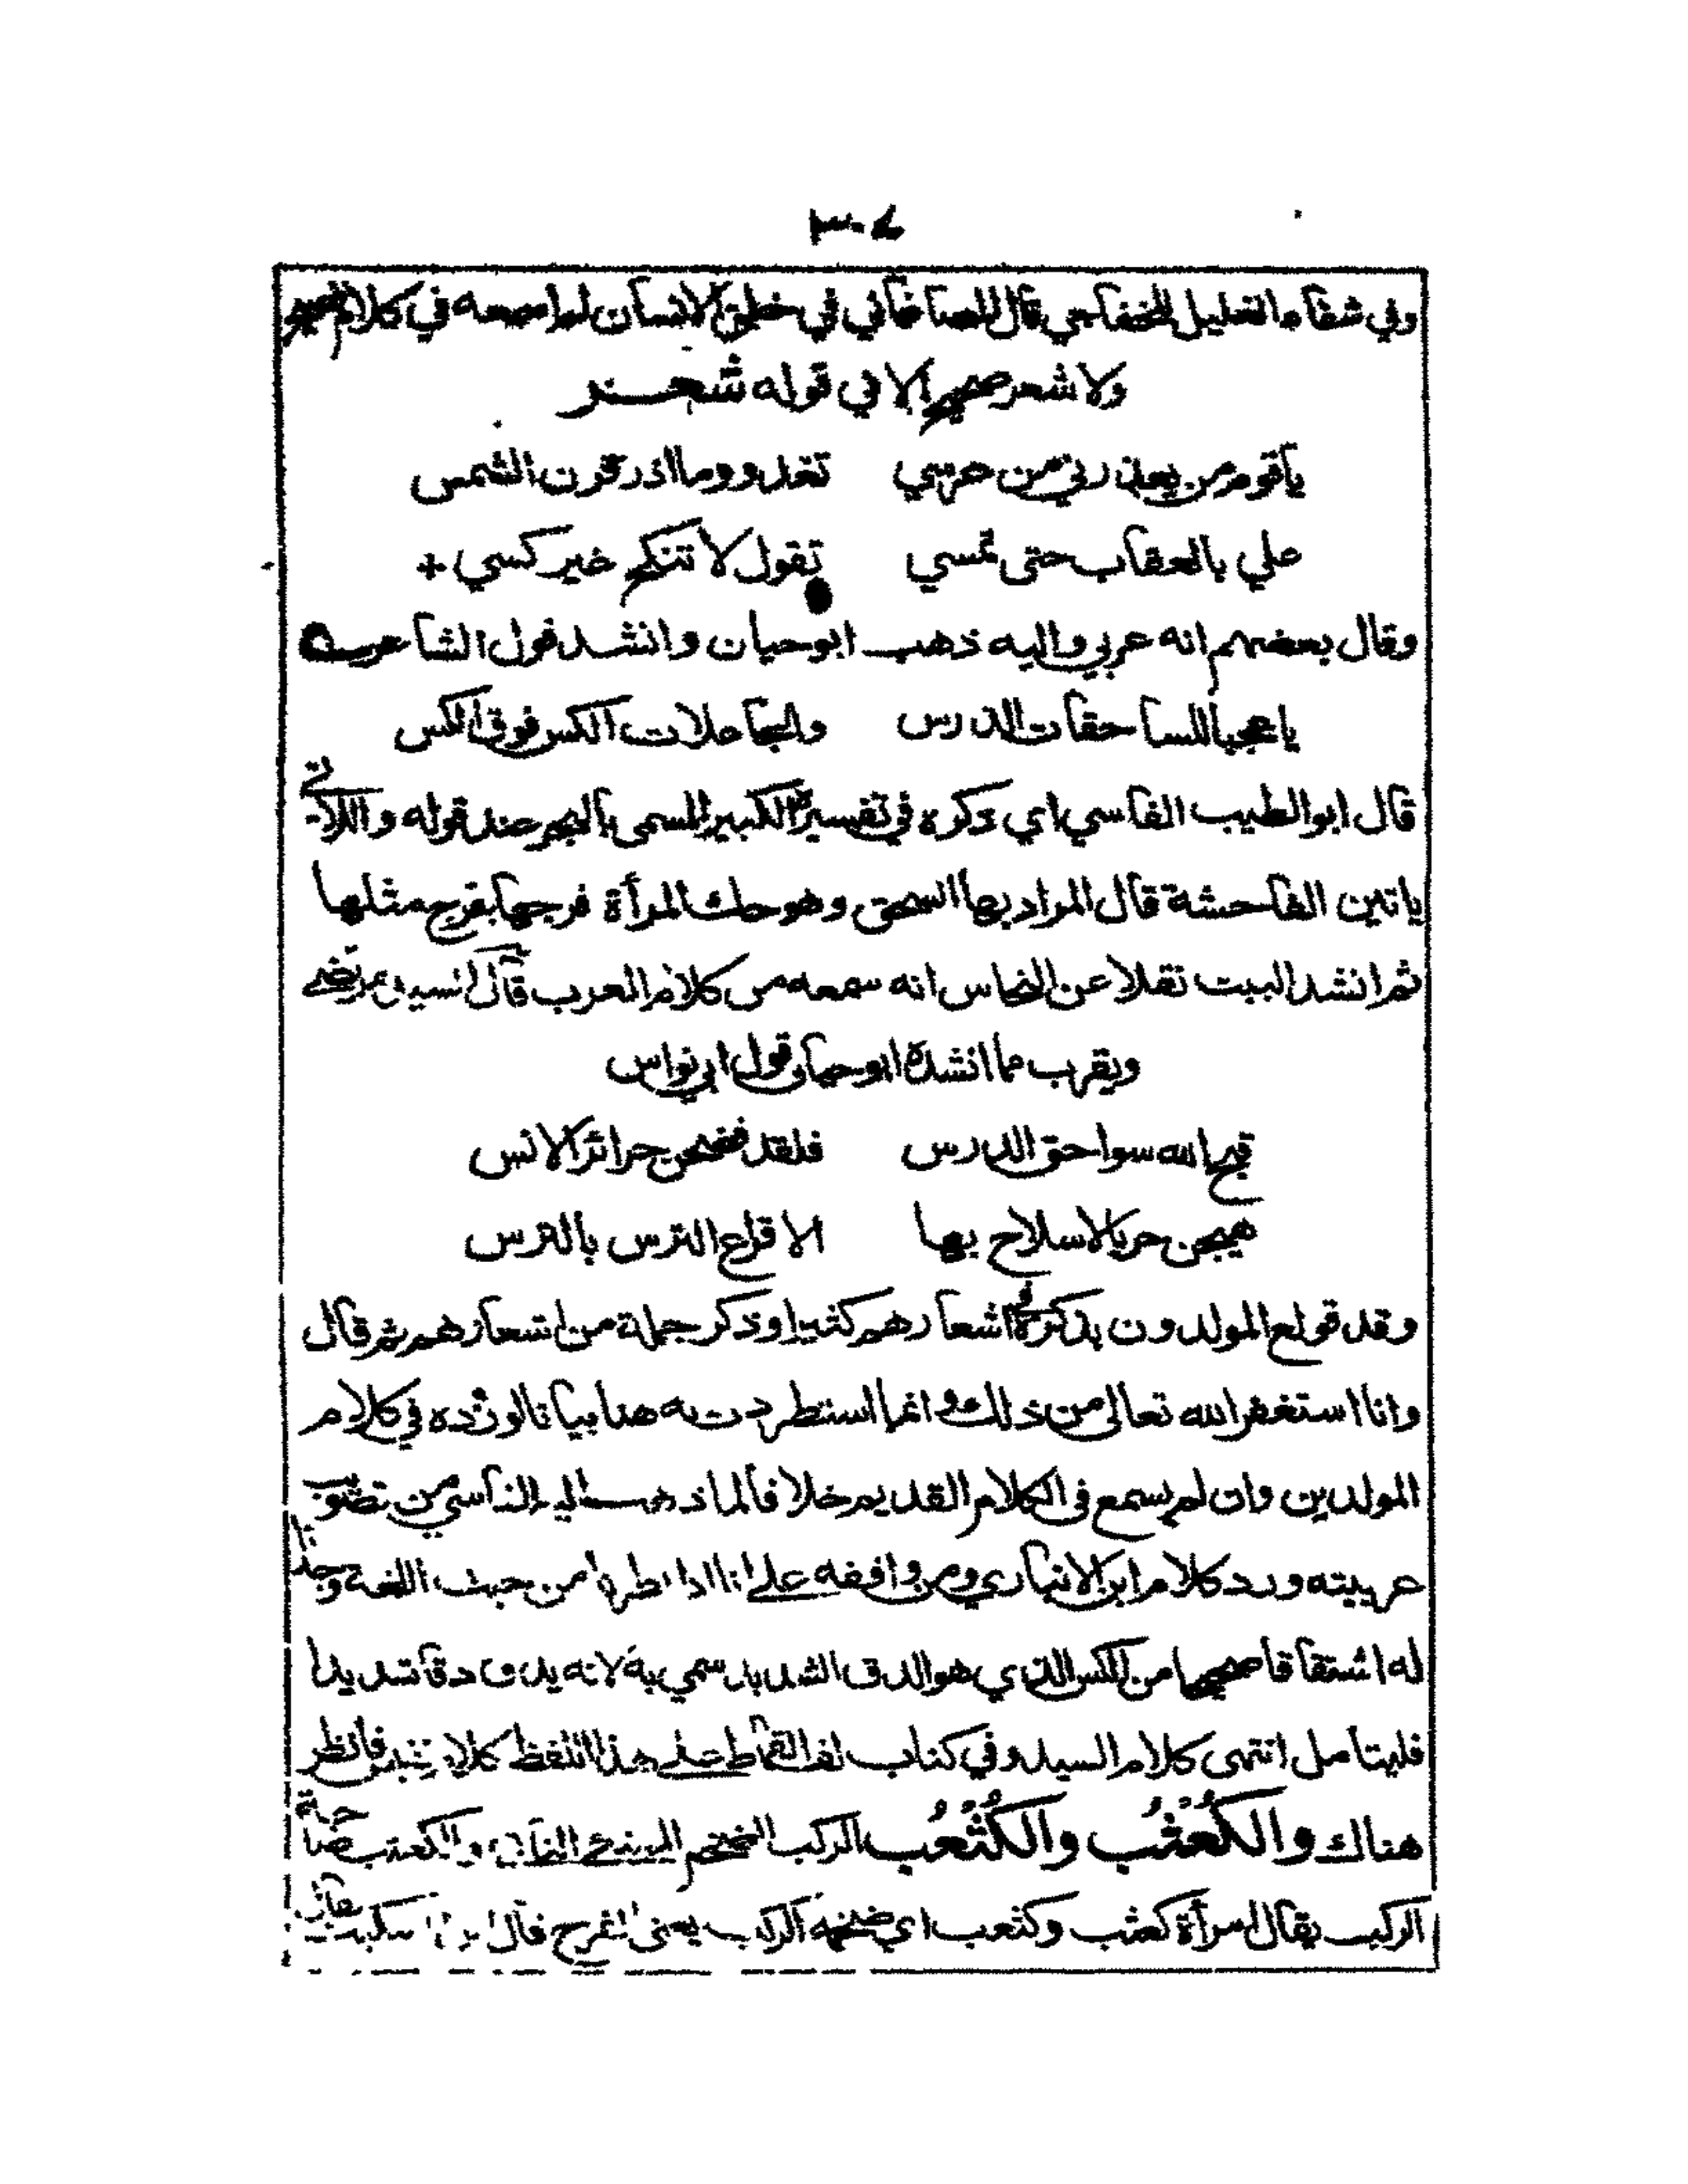 ٣٠٤
وفي شفاء الغليل للخفاجي قال الصاغاني في خلق الانسان لم اسمعه في كلام فصيح
ولا شعر صحيح الا في قوله شعر
يا قوم من يعذرني من عرسي تغدو وما اذر قرن الشمس
علي بالعقاب حتى تمسي تقول لا تنكح غير كسي +
وقال بعضهم انه عربي واليه ذهب ابو حيان وانشد قول الشاعر
يا عجبا للساحقات الدرس والجاعلات الكس فوق الكس
قال ابو الطيب الفاسي اي ذكره في تفسيره الكبير المسمى بالبحر عند قوله واللاتي
ياتين الفاحشة قال المراد بها السحق وهو حك المرأة فرجها بفرج مثلها
ثم انشد البيت نقلا عن النحاس انه سمعه من كلام العرب قال السيد مرتضى
ويقرب مما انشده ابو حيان قول ابي نواس
قبح الله سواحق الدرس فلقد فضحن حرائر الانس
هيجن حربا لا سلاح بها الا قراع الترس بالترس
وقد تولع المولدون بذكره في اشعارهم كثيرا وذكر جملة من اشعارهم ثم قال
وانا استغفر الله تعالى من ذلك وانما استطردت به هنا بيانا لوروده في كلام
المولدين وان لم يسمع في الكلام القديم خلافا لما ذهب اليه الفاسي من تصويب
عربيته ورد كلام ابن الانباري ومن وافقه على انا اذا نظرنا من حيث اللغة وجدنا
له اشتقاقا صحيحا من الكس الذي هو الدق الشديد سمي به لانه يدق دقا شديدا
فليتامل انتهى كلام السيد وفي كتاب لف القماط على هذا اللفظ كلام فانظر
هناك والكُعْثُب والكُثْعُب الركب الضخم الممتلئ الناتئ والكعثب صاحبة
الركب يقال امرأة كعثب وكثعب اي ضخمة الركب يعني الفرج قال